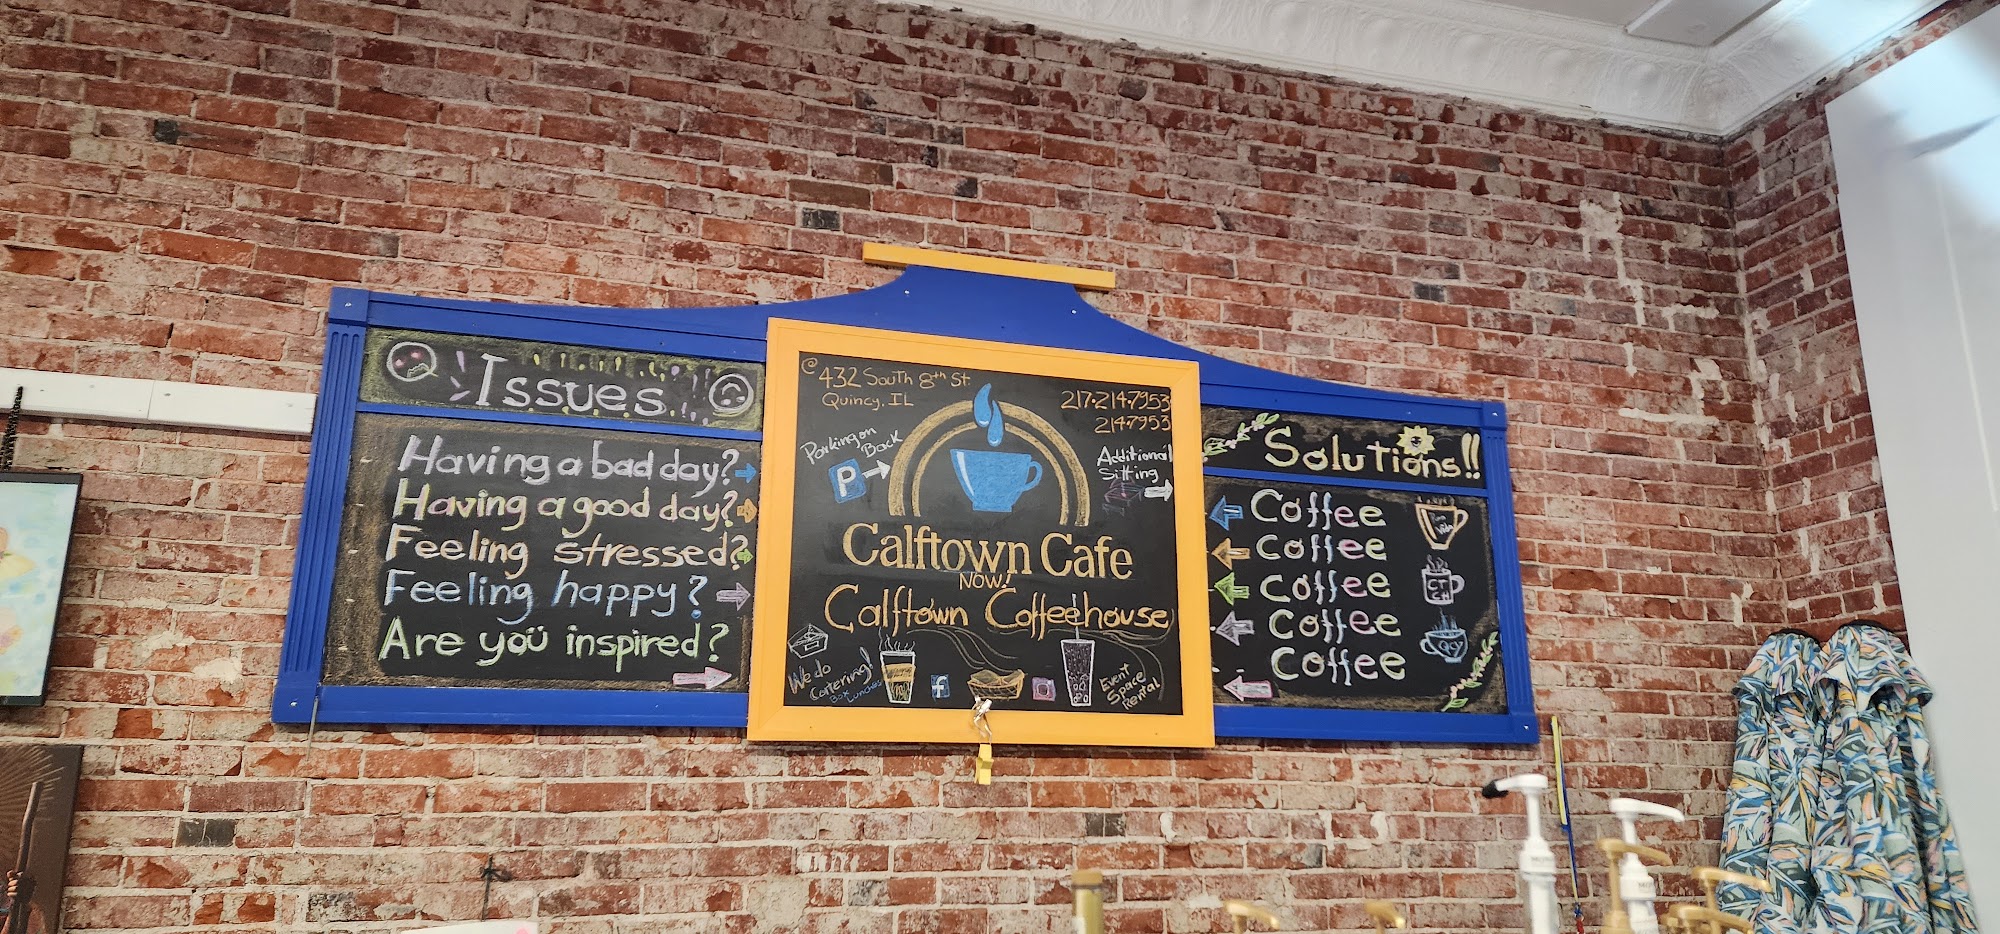 Issues
Having a bad day?
Having a good day?
Feeling stressed?
Feeling happy?
Are you inspired?
@ 432 South 8th St.
Quincy, IL
217·214·7953
214·7953
Parking on
Back
P
Additional
Sitting
Calftown Cafe
NOW!
Calftown Coffeehouse
We do
Catering!
Box Lunches
f
Event
Space
Rental
Solutions!!
Coffee
Coffee
Coffee
Coffee
Coffee
CT
CH